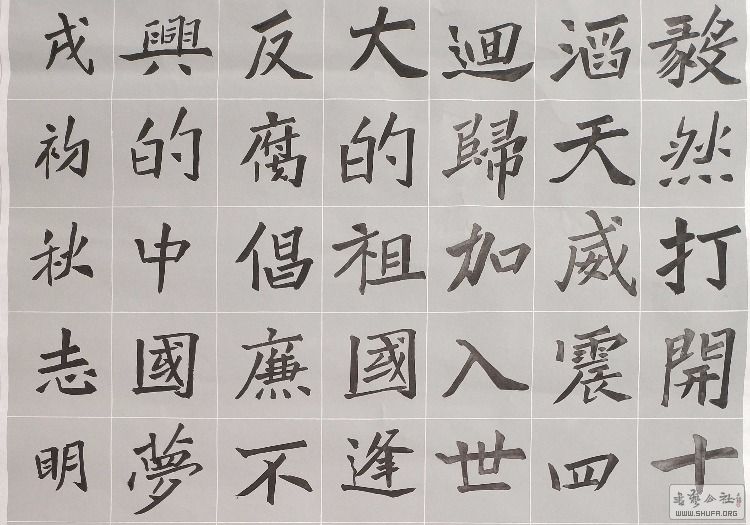 毅然打開十
滔天威震四
迴歸加入世
大的祖國逢
反腐倡廉不
興的中國夢
戌初秋志明
书艺公社
WWW.SHUFA.ORG